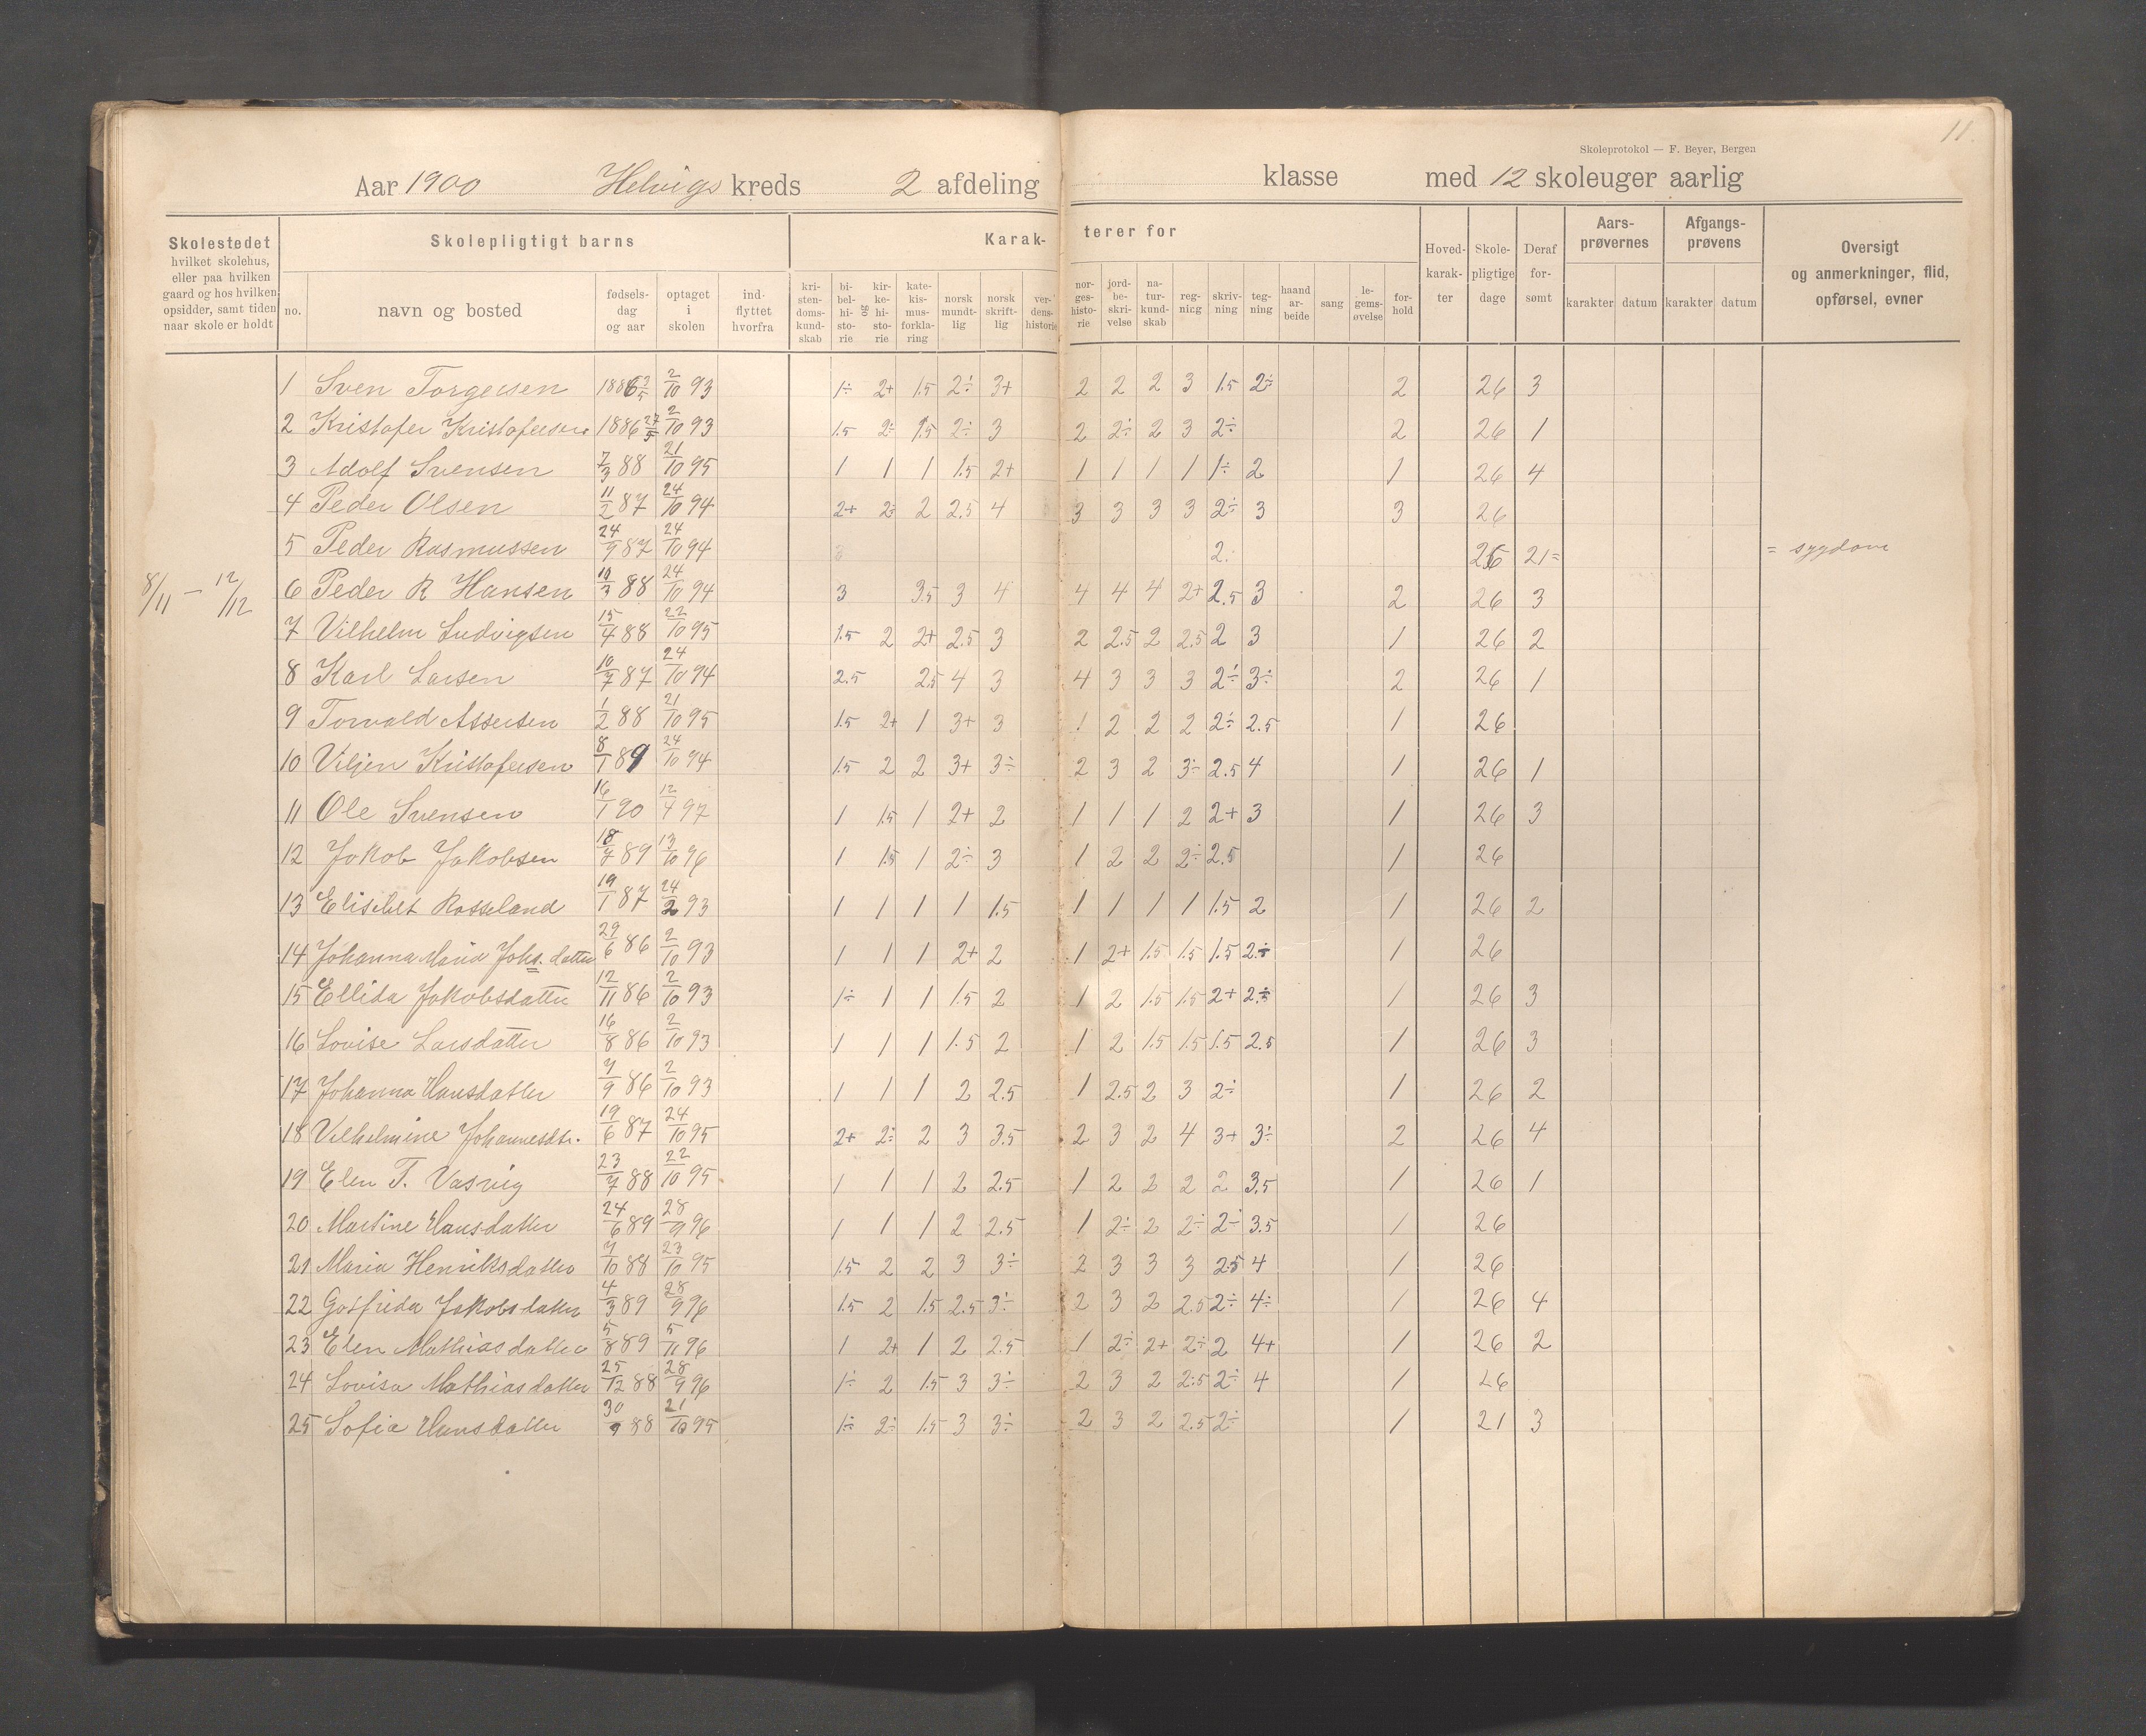 11
Skoleprotokol — F. Beyer, Bergen
Aar 1900 Helvigs kreds 2 afdeling klasse med 12 skoleuger aarlig
Skolestedet hvilket skolehus, eller paa hvilken gaard og hos hvilken opsidder, samt tiden naar skole er holdt
Skolepligtigt barns
no. navn og bosted fødsels-dag og aar optaget i skolen ind-flyttet hvorfra
Karak-terer for
kri-sten-doms-kund-skab bi-bel-hi-sto-rie og kir-ke-hi-sto-rie kate-kis-mus-forkla-ring norsk mundt-lig norsk skrift-lig ver-dens-historie nor-ges-histo-rie jord-be-skri-velse na-tur-kund-skab reg-nicg skriv-ning teg-ning haand ar-beide sang le-gems-øvelse for-hold
Hoved-karak-ter Skole-pligtige dage Deraf for-sømt
Aars-prøvernes karakter datum
Afgangs-prøvens karakter datum
Oversigt og anmerkninger, flid, opførsel, evner
8/11 — 12/12
1 Sven Torgersen 1886 2/10 93 1÷ 2+ 1.5 2÷ 3+ 2 2 2 3 1.5 2÷ 2 26 3
2 Kristofer Kristofersen 1886 27/5 2/10 93 1.5 2÷ 1.5 2÷ 3 2 2÷ 2 3 2÷ 2 26 1
3 Adolf Svensen 7/3 88 21/10 95 1 1 1 1.5 2+ 1 1 1 1 1÷ 2 1 26 4
4 Peder Olsen 11/2 87 24/10 94 2+ 2÷ 2 2.5 4 3 3 3 3 2÷ 3 3 26
5 Peder Rasmussen 24/9 87 24/10 94 2. 26 21= = sygdom
6 Peder R Hansen 10/3 88 24/10 94 3 3.5 3 4 4 4 4 2+ 2.5 3 2 26 3
7 Vilhelm Ludvigsen 15/4 88 22/10 95 1.5 2 2+ 2.5 3 2 2.5 2 2.5 2 3 1 26 2
8 Karl Larsen 10/7 87 24/10 94 2.5 2.5 4 3 4 3 3 3 2÷ 3÷ 2 26 1
9 Torvald Assersen 1/2 88 21/10 95 1.5 2+ 1 3+ 3 1 2 2 2 2÷ 2.5 1 26
10 Viljen Kristofersen 8/1 89 24/10 94 1.5 2 2 3+ 3÷ 2 3 2 3÷ 2.5 4 1 26 1
11 Ole Svensen 16/1 90 12/4 97 1 1.5 1 2+ 2 1 1 1 2 2+ 3 1 26 3
12 Jakob Jakobsen 18/7 89 13/10 96 1 1.5 1 2÷ 3 1 2 2 2÷ 2.5 1 26
13 Elisebet Rosseland 19/1 87 24/2 93 1 1 1 1 1.5 1 1 1 1 1.5 2 1 26 2
14 Johanna Maria Johs. datter 29/6 86 2/10 93 1 1 1 2+ 2 1 2+ 1.5 1.5 1.5 2÷ 1 26
15 Ellida Jakobsdatter 12/11 86 2/10 93 1÷ 1 1 1.5 2 1 2 1.5 1.5 2+ 2÷ 1 26 3
16 Lovise Larsdatter 16/8 86 2/10 93 1 1 1 1.5 2 1 2 1.5 1.5 1.5 2.5 1 26 3
17 Johanna Hansdatter 7/9 86 2/10 93 1 1 1 2 2.5 1 2.5 2 3 2÷ 1 26 2
18 Vilhelmine Johannesdtr. 19/6 87 24/10 95 2+ 2÷ 2 3 3.5 2 3 2 4 3+ 3÷ 2 26 4
19 Elen T. Vasvig 23/7 88 22/10 95 1 1 1 2 2.5 1 2 2 2 2 3.5 1 26 1
20 Martine Hansdatter 24/6 89 28/9 96 1 1 1 2 2.5 1 2÷ 2 2÷ 2÷ 3.5 1 26
21 Maria Henriksdatter 7/10 88 23/10 95 1.5 2 2 3 3÷ 2 3 3 3 2.5 4 1 26
22 Gotfrida Jakobsdatter 4/3 89 28/9 96 1.5 2 1.5 2.5 3÷ 2 3 2 2.5 2÷ 4÷ 1 26 4
23 Elen Mathiasdatter 5/8 89 5/11 96 1 2+ 1 2 2.5 1 2÷ 2+ 2÷ 2 4+ 1 26 2
24 Lovisa Mathiasdatter 25/12 88 28/9 96 1÷ 2 1.5 3 3÷ 2 3 2 2.5 2÷ 4 1 26
25 Sofia Hansdatter 30/9 88 21/10 95 1÷ 2÷ 1.5 3 3÷ 2 3 2 2.5 2÷ 1 21 3